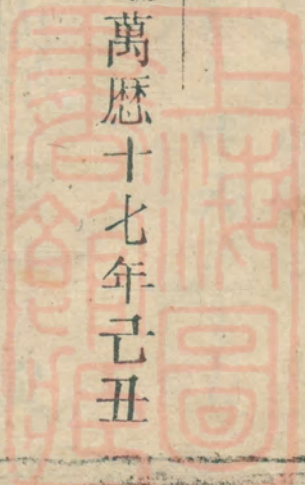 萬厯十七年己丑
上海圖
書館藏